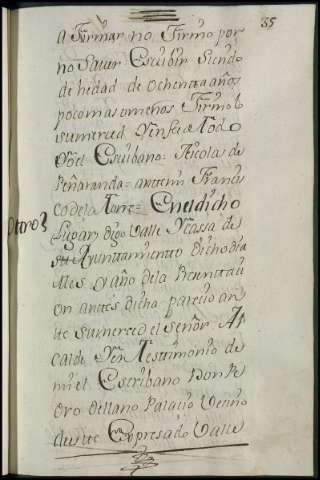 35
a Firmar no Firmo por
no Saver Escribir Siendo
de hedad de ochentta años
poco mas o menos Firmolo
su merced Yen fee de todo
Yo el Escribano = Nicolas de
Peñaranda = antte mi Francis
co de la Torre = En el dicho
Ottro?
Lugar, digo Valle Ycassa de
su Ayunttamientto dicho dia
Mes y año de la Presenttaci
on anttes dicha pareció an
tte su merced el señor Al
calde Yen Testtimonio de
mi el Escribano Don Pe
dro de llano Palacio Vecino
de este Expresado Valle